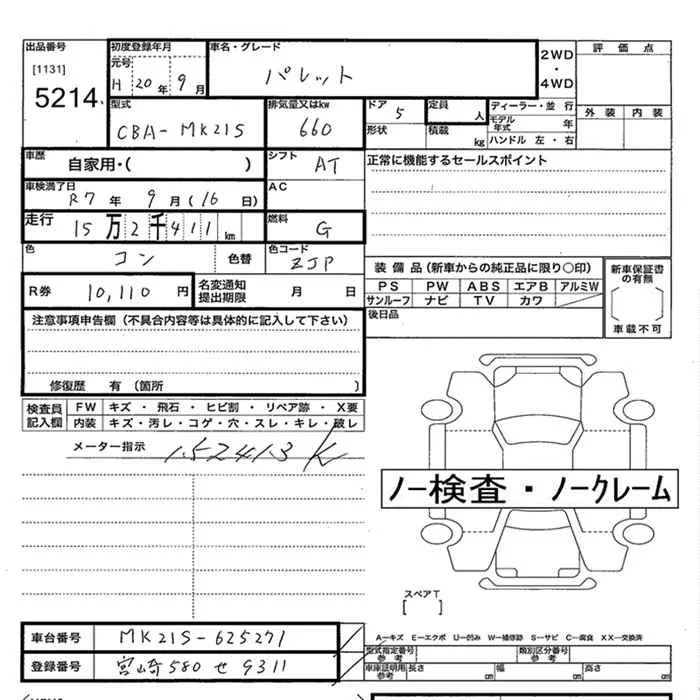 出品番号 初度登録年月 車名・グレード 2WD・4WD 評価点
[1131] 元号
5214 H 20年 9月 パレット
型式 排気量又はkw ドア 定員 人 ディーラー・並行 外装 内装
CBA-MK21S 660 5 形状 積載 kg モデル年式 年
ハンドル 左・右
車歴 自家用・( ) シフト AT 正常に機能するセールスポイント
車検満了日 R7年 9月(16日) AC
走行 15万2千411km 燃料 G
色 コン 色替 色コード ZJP
装備品(新車からの純正品に限り〇印) 新車保証書の有無
R券 10,110円 名変通知提出期限 月 日 PS PW ABS エアB アルミW
サンルーフ ナビ TV カワ [ ]
注意事項申告欄(不具合内容等は具体的に記入して下さい) 後日品 車載不可
修復歴 有(箇所 )
検査員記入欄 FW キズ・飛石・ヒビ割・リペア跡・X要
内装 キズ・汚レ・コゲ・穴・スレ・キレ・破レ
メーター指示 152413K
ノー検査・ノークレーム
スペアT
[ ]
A―キズ E―エクボ U―凹み W―補修跡 S―サビ C―腐食 XX―交換済
車台番号 MK21S-625271 型式指定番号 参考 類別区分番号 参考
登録番号 宮崎580せ9311 車庫証明用 参考 長さ cm 幅 cm 高さ cm